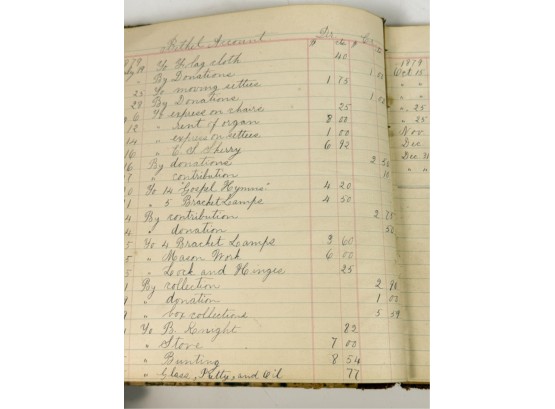 Bethel Account Dr. Cr.
$ cts $ cts
1879
19 To Flag cloth 40
" By Donations 1 00
25 To moving settees 1 75
29 By Donations 1 00
6 To express on chairs 25
12 " rent of organ 8 00
14 " express on settees 1 00
16 " C S Sherry 6 92
16 By donations 2 50
7 " contribution 10
0 To 14 "Gospel Hymns" 4 20
1 " 5 Bracket Lamps 4 50
4 By contribution 2 75
4 " donation 50
5 To 4 Bracket Lamps 3 60
5 " Mason Work 6 00
5 " Lock and Hinges 25
1 By collection 2 96
9 " donation 1 00
9 " box collections 5 59
1 To B. Knight 82
" Stove 7 00
" Bunting 8 54
" Glass, Putty, and Oil 77
1879
Oct 15
" "
" "
" 25
" 25
Nov
Dec
Dec 31
" "